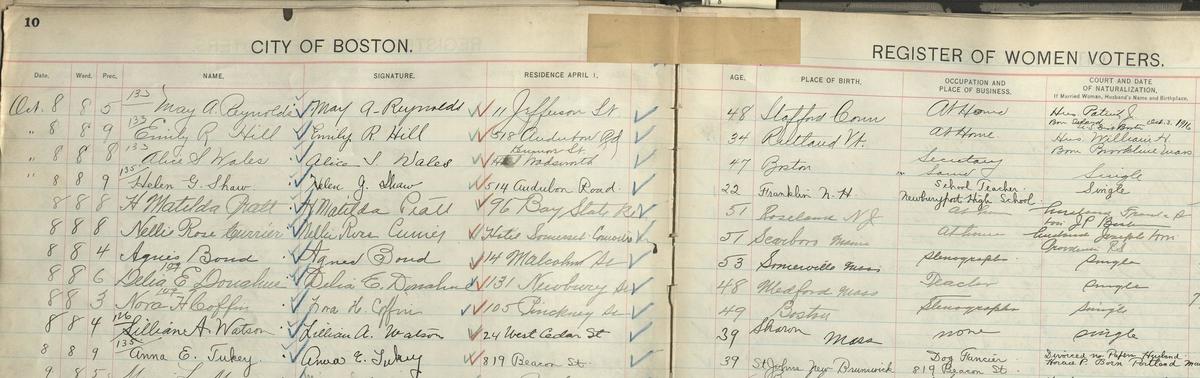 10
CITY OF BOSTON.
REGISTER OF WOMEN VOTERS.
Date. Ward. Prec. NAME. SIGNATURE. RESIDENCE APRIL 1.
AGE. PLACE OF BIRTH. OCCUPATION AND PLACE OF BUSINESS. COURT AND DATE OF NATURALIZATION.
If Married Woman, Husband's Name and Birthplace.
Oct. 8 8 5 135 May A. Reynolds May A. Reynolds 11 Jefferson St 48 Stafford Conn At Home Hus. Patrick J.
" 8 9 133 Emily R. Hill Emily R. Hill 518 Audubon Rd 34 Rutland Vt. At Home Hus. William H.
Born Brookline Mass
" 8 8 133 Alice S Wales Alice S Wales Wadsworth 47 Boston Secretary Single
" 8 9 135 Helen G. Shaw Helen G. Shaw 514 Audubon Road 22 Franklin N. H School Teacher. Single
Newburyport High School
8 8 8 H Matilda Pratt H Matilda Pratt 96 Bay State Rd 51 Roseland NJ At home husband Frank
8 8 8 Nellie Rose Currier Nellie Rose Currier Hotel Somerset 51 Scarboro Maine At home husband Joseph
8 8 4 Agnes Bond Agnes Bond 14 Malcolm St 53 Somerville Mass Stenographer Single
8 8 6 Delia E. Donahue Delia E. Donahue 131 Newbury St 48 Medford Mass Teacher Single
8 8 3 Nora H Coffin Nora H. Coffin 105 Pinckney St 49 Boston Stenographer Single
8 8 4 Lilliane A. Watson Lillian A. Watson 24 West Cedar St 39 Sharon Mass none Single
8 8 9 135 Anna E. Tukey. Anna E. Tukey 819 Beacon St. 39 St Johns New Brunswick Dog Fancier Divorced no Papers Husband
819 Beacon St. Horace P. Born Portland